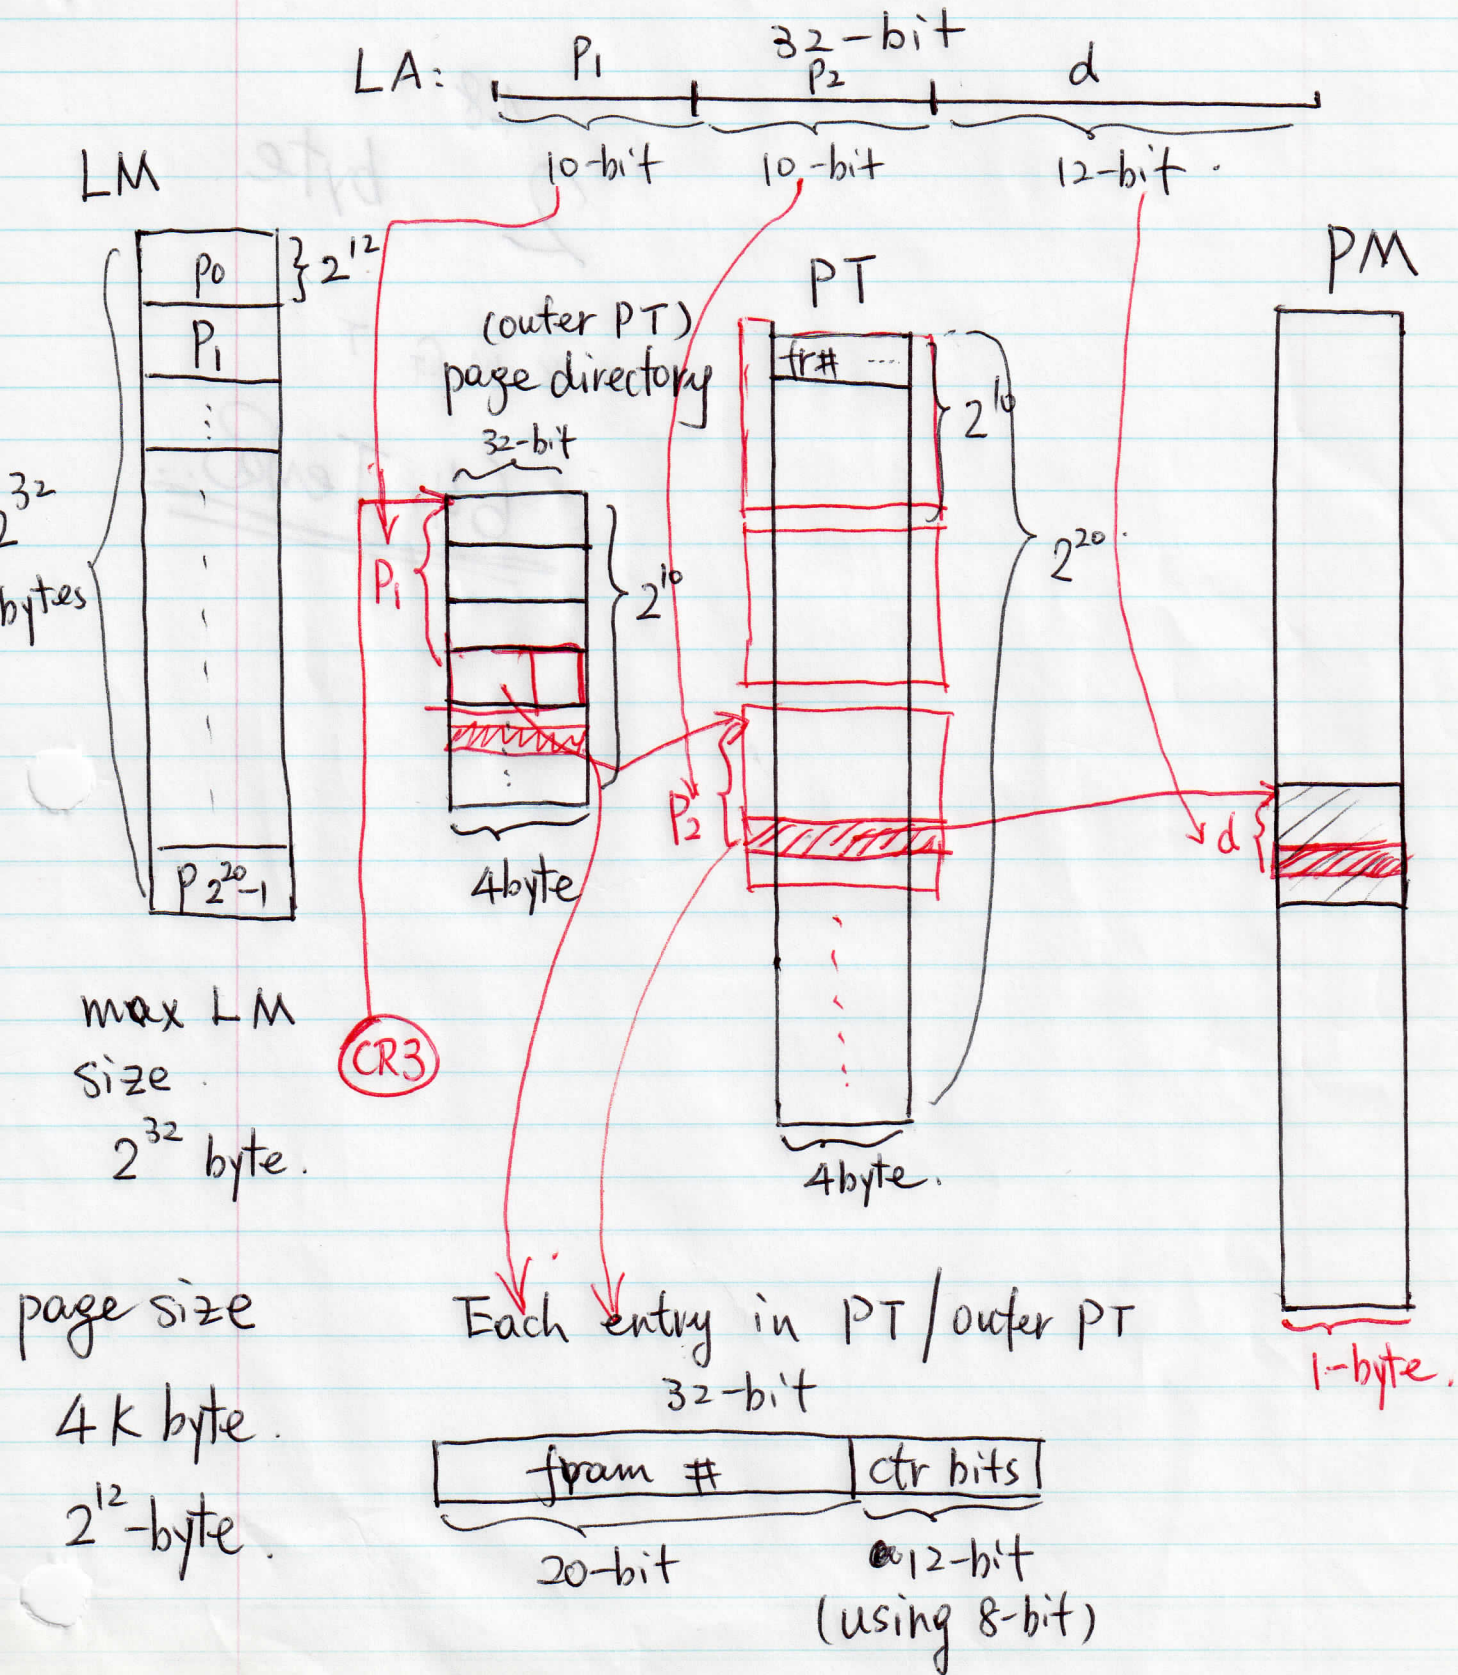 32-bit
LA: P1 P2 d
10-bit 10-bit 12-bit.
LM
P0 } 2^12
P1
2^32
bytes
P 2^20-1
max LM
size
2^32 byte.
page size
4K byte.
2^12-byte.
(outer PT)
page directory
32-bit
P1
2^10
4byte
CR3
PT
fr# ....
2^10
2^20.
P2
4byte.
PM
d
1-byte.
Each entry in PT/outer PT
32-bit
fram # ctr bits
20-bit 12-bit
(using 8-bit)